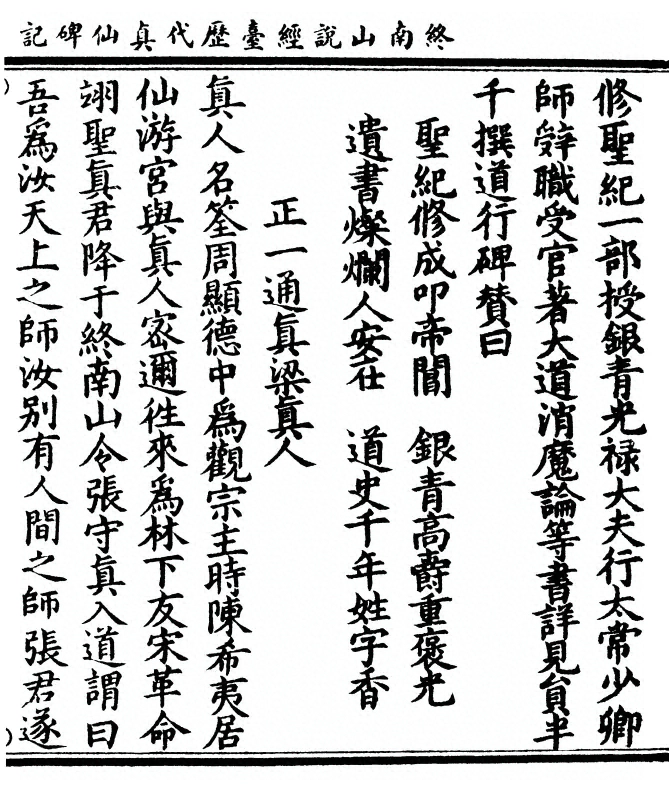 終南山說經臺歷代真仙碑記
修聖紀一部授銀青光祿大夫行太常少卿
師辤職受官著大道消魔論等書詳見負半
千撰道行碑賛曰
聖紀修成叩帝閽　銀青高爵重褒光
遺書燦爛人安在　道史千年姓字香
正一通真梁真人
真人名筌周顯德中為觀宗主時陳希夷居
仙游宮與真人密邇徃來為林下友宋革命
翊聖真君降于終南山令張守真入道謂曰
吾為汝天上之師汝別有人間之師張君遂